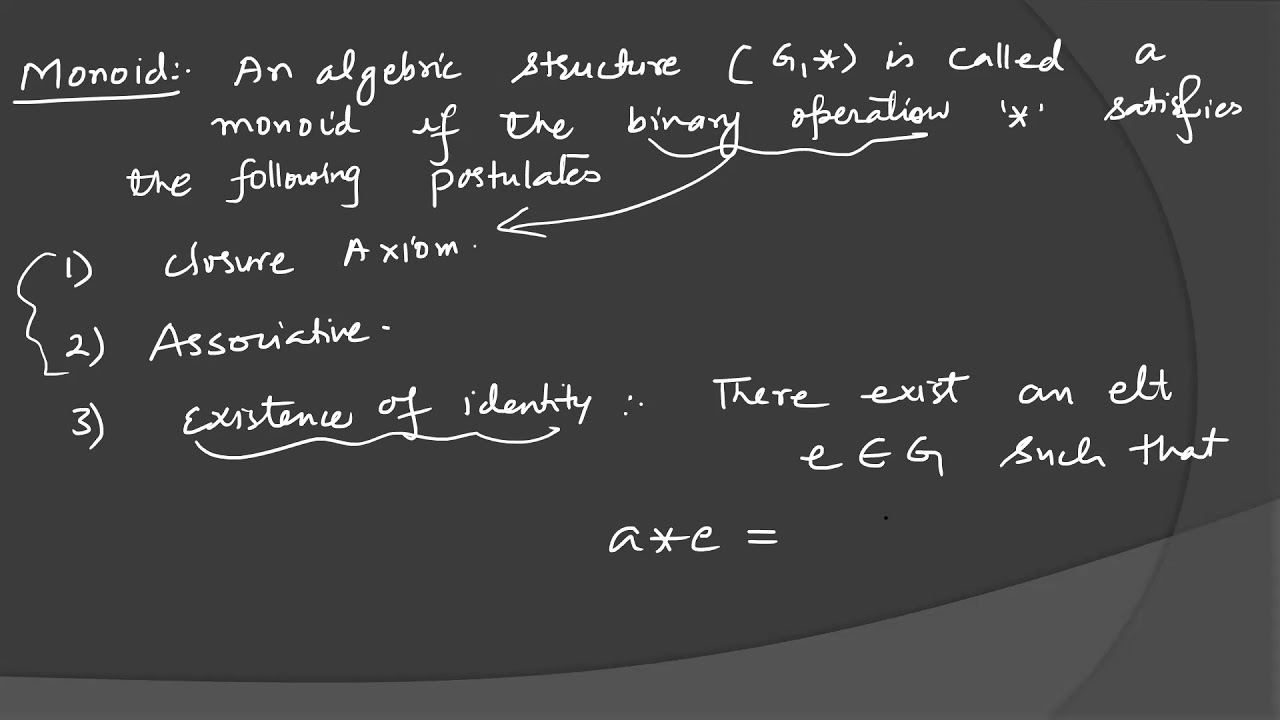 Monoid:. An algebric structure (G,*) is called a
monoid if the binary operation '*' satisfies
the following postulates
1) closure Axiom.
2) Associative.
3) Existence of identity :. There exist an elt
e ∈ G such that
a*e =